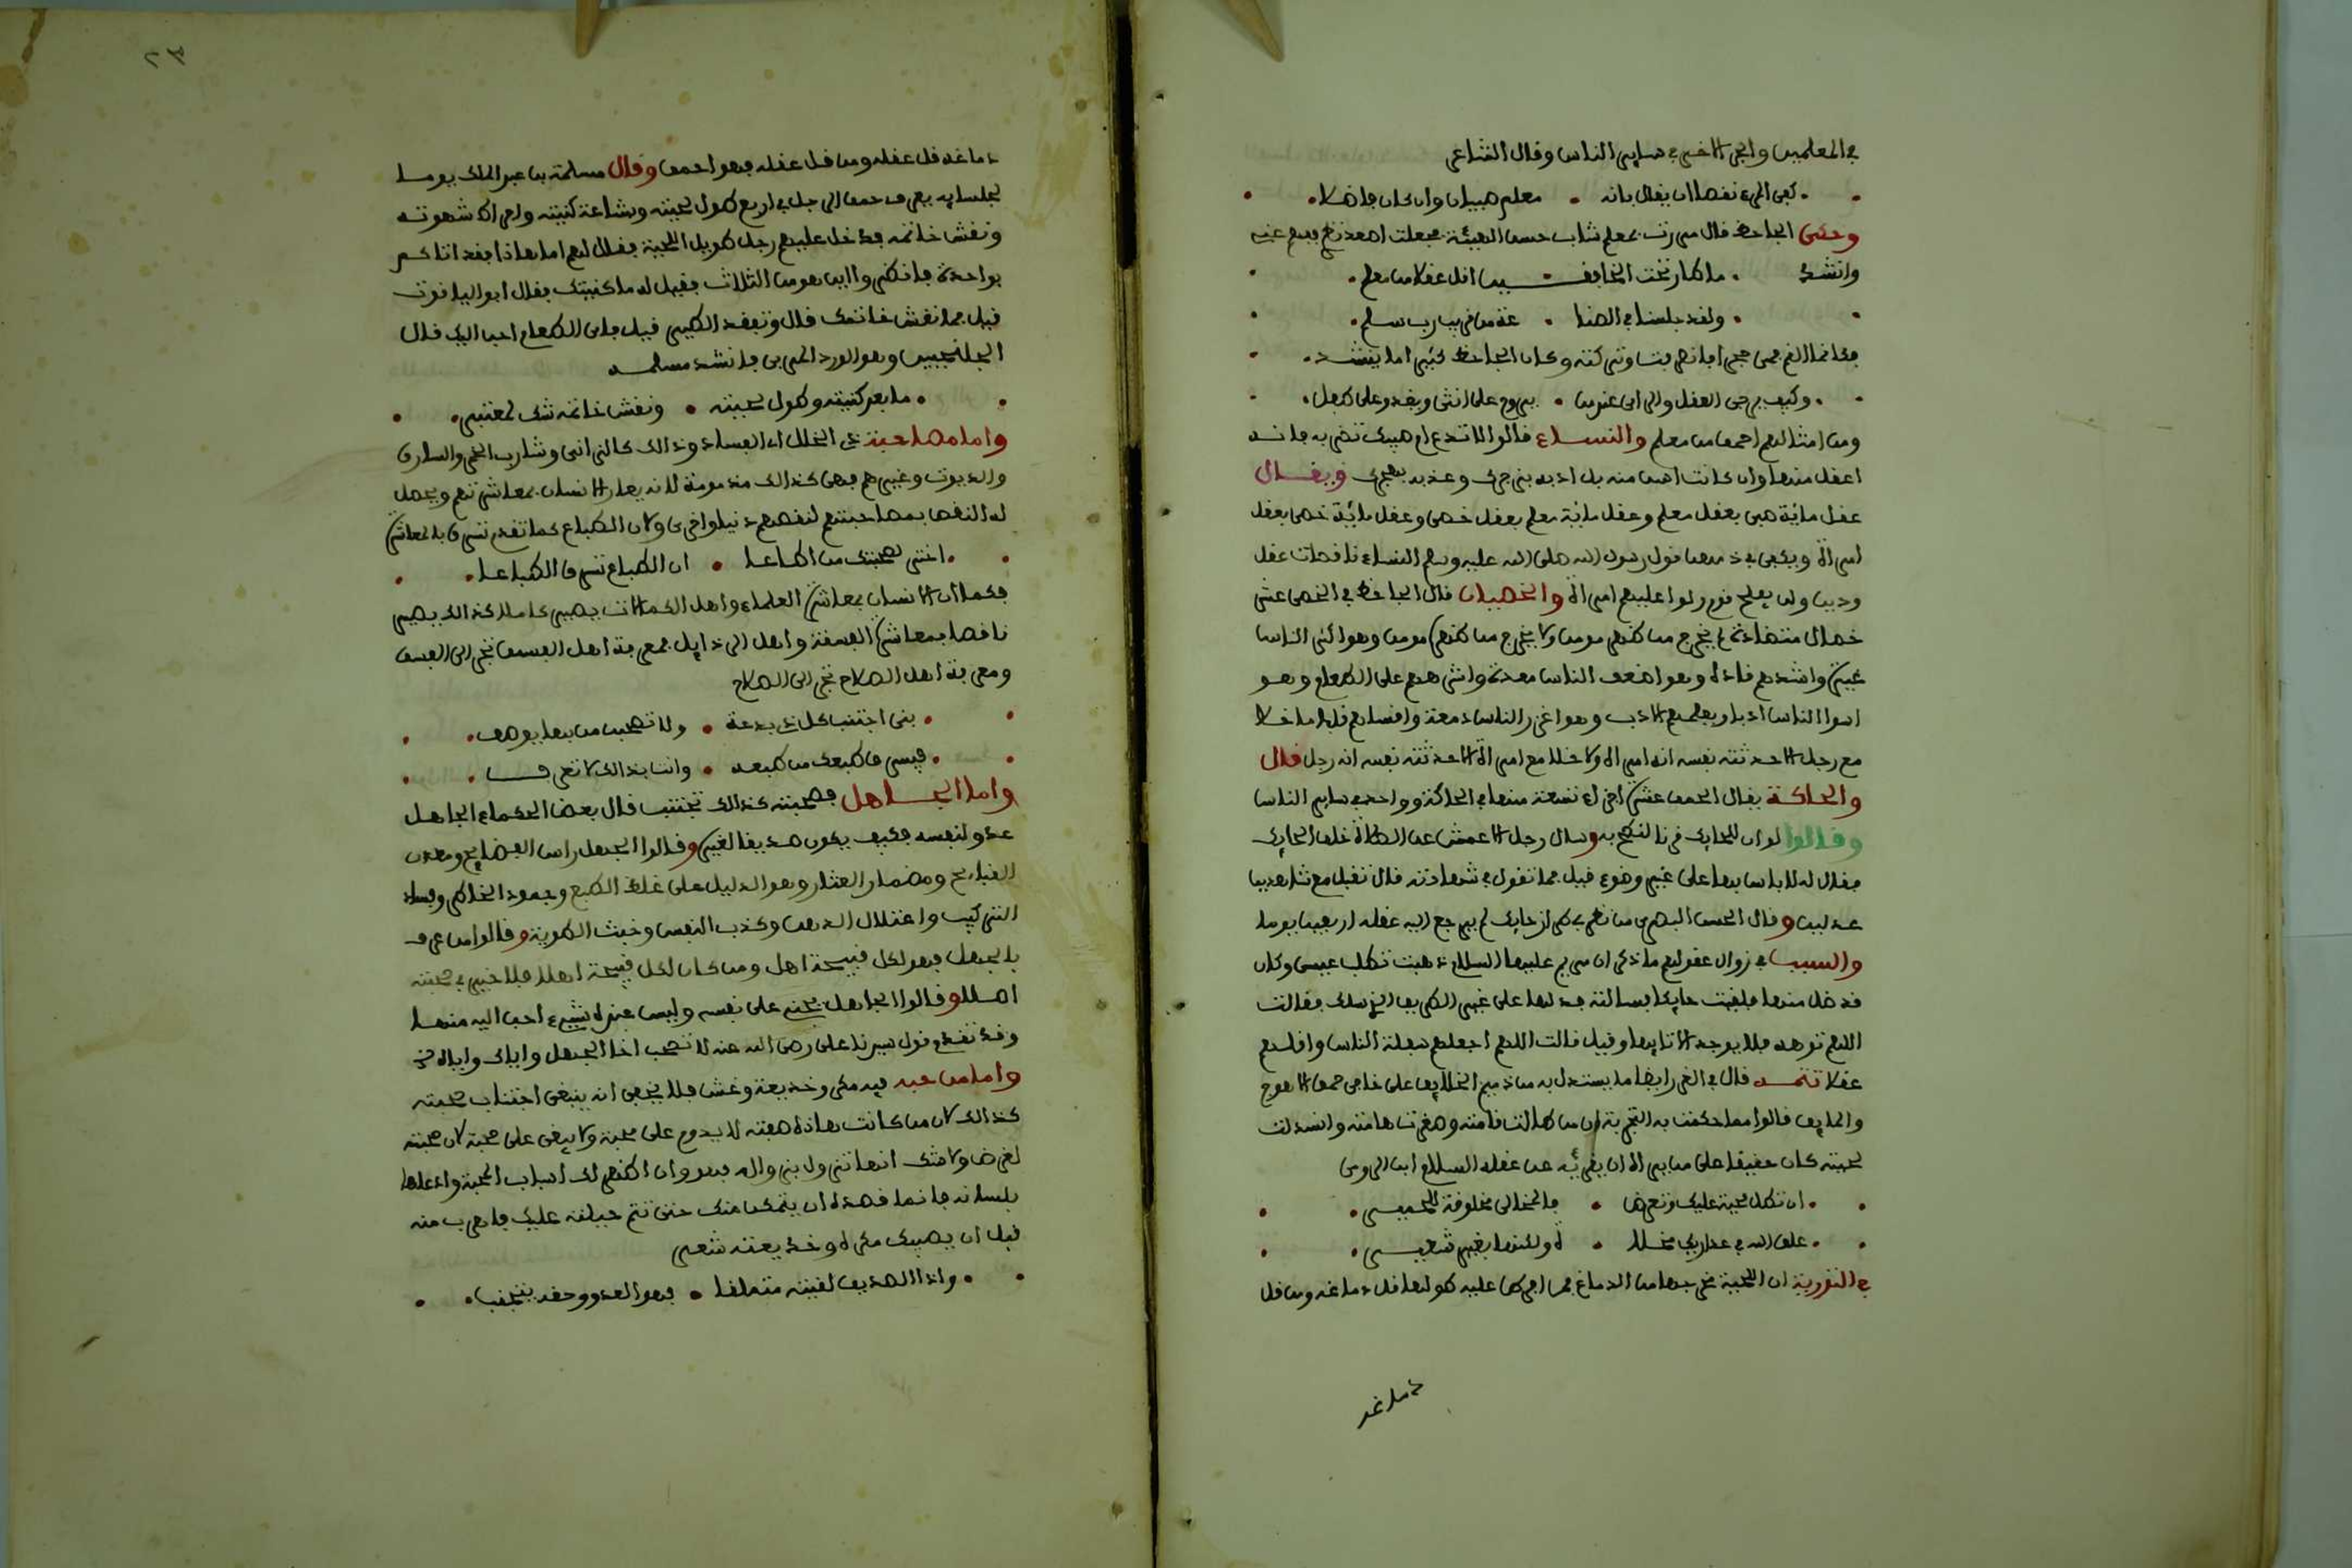 في المعلمين والجزء الاخر في ساير الناس وقال الشاعر
كفى المرء نقصا ان يقال بانه • معلم صبيان وان كان فاضلا
وحكى الجاحظ قال مررت بمعلم شاب حسن الهيئة فجعلت اصعد نظري فيه
وانشد • ما طار تحت الخافقـــين اقل عقلا من معلم
ولقد جلسنا في الصنا • عة من قريب رب سلم
فكانما القم فمي حجرا فانصرفت وتركته وكان الجاحظ كثيرا ما ينشد
وكيف يرجى العقل والراي عند من • يروح على انثى ويغدو على طفل
ومن امثالهم احمق من معلم والنســـاء قالوا لا تدع ام صبيك تضربه فانـه
اعقل منها وان كانت اسن منه بل ادبه بزجرك وهذبه بهجرك ويقـــال
عقل ماية صبي بعقل معلم وعقل ماية معلم بعقل خصي وعقل ماية خصي بعقل
امراة ويكفي في ذمهن قول رسول الله صلى الله عليه وسلم النساء ناقصات عقل
ودين ولن يفلح قوم ولوا عليهم امراة والخصيان قال الجاحظ في الخصي عشر
خصال متضادة لم يخرج من ظهره مومن ولا يخرج من ظهر مومن وهو اكثر الناس
غيرة واشدهم قادة وهو اضعف الناس معدة واشرههم على الطعام وهـو
اسوا الناس ادبا ويعلمهم الادب وهو اغزر الناس دمعة واقساهم قلبا ما خلا
مع رجل الا حدثته نفسه انه امراة ولا خلا مع امراة الا حدثته نفسه انه رجل قال
والحاكة يقال الحمق عشرة اجزاء تسعة منها في الحاكة وواحد في ساير الناس
وقالوا لو ان للحايك قرنا لنطح به وسال رجل الاعمش عن الصلاة خلف الحايك
فقال له لا باس بها على غير وضوء قيل فما تقول في شهادته قال تقبل مع شاهدين
عدلين وقال الحسن البصري من نظر في طراز حايك لم يرجع اليه عقله اربعين يوما
والسبب في زوال عقولهم ما ذكر ان مريم عليها السلام ذهبت تطلب عيسى وكان
قد ضل منها فلقيت حايكا فسالته فدلها على غير الطريق الذي سلك فقالت
اللهم توهه فلا يوجد الا تايها وقيل قالت اللهم اجعلهم سفلة الناس واقلهم
عقلا تتمـــه قال في الغرر ايضا ما يستدل به من ذميم الخلايق على خاص حمق الاهوج
والمايق قالوا مما حكمت به التجربة ان من طالت قامته وصغرت هامته وانسدلت
لحيته كان حقيقا على من يراه ان يقريه عن عقله السلام ابن الرومي
ان تطل لحية عليك وتعرض • فالمخالي مخلوقة للحميـــر
علق الله في عذاريك مخـلا • ة ولكنها بغير شعيـــر
في التورية ان اللحية مخرجها من الدماغ فمن افرط عليه طولها قل دماغه ومن قل
دماغه
دماغه قل عقله ومن قل عقله فهو احمق وقال مسلمة بن عبد الملك يوما
لجلسايه يعرف حمق الرجل في اربع طول لحيته وبشاعة كنيته وافراط شهوته
ونقش خاتمه فدخل عليهم رجل طويل اللحية فقال لهم اما هاذا فقد اتاكم
بواحدة فانظروا اين هو من الثلاث فقيل له ما كنيتك فقال ابو الياقوت
قيل فما نقش خاتمك قال وتفقد الطير قيل فاي الطعام احب اليك قال
الجلنجبين وهو الورد المربى فانشد مسلمـــه
ما بعد كنيته وطول لحيته • ونقش خاتمه شك لمعتبر
واما مصاحبة ذي الخلال الفساد وذالك كالزاني وشارب الخمر والسارق
والديوث وغيرهم فهي كذالك مذمومة لانه يعار الانسان بمعاشرتهم ويحصل
له النقص بمصاحبتهم لنقصهم دنيا واخرى ولان الطباع كما تقدم تسرق بالمعاشرة
اختر لصحبتك من اطاعا • ان الطباع تسرق الطباعا
فكما ان الانسان بمعاشرة العلماء واهل الكمالات يصير كاملا كذالك يصير
ناقصا بمعاشرة الفسقة واهل الرذايل فمعرفة اهل الفسق تجر الى الفسق
ومعرفة اهل الصلاح تجر الى الصلاح
بني اجتنب كل ذي بدعة • ولا تصحبن من بها يوصف
فيسرق طبعك من طبعه • وانت بذالك لا تعرف
واما الجـــاهل فصحبته كذالك تجتنب قال بعض الحكماء الجاهل
عدو لنفسه فكيف يكون صديقا لغيره وقالوا الجهل راس الفضايح ومعدن
القبايح ومضمار العثار وهو الدليل على غلظ الطبع وجمود الخاطر وفساد
التركيب واعتلال الذهن وكذب النفس وخبث الطوية وقالوا من عرف
بالجهل فهو لكل قبيحة اهل ومن كان لكل قبيحة اهلا فلا خير في صحبته
اصـلا وقالوا الجاهل يجني على نفسه وليس عنده شيء احب اليه منها
وقد تقدم قول سيدنا علي رضي الله عنه لا تصحب اخا الجهل واياك واياه
واما من فيه مكر وخديعة وغش فلا يخفى انه ينبغي اجتناب صحبته
كذالك لان من كانت هاذه صفته لا يدوم على صحبة ولا يبقى على محبة لان صحبته
لغرض ولا شك انها تزول بزواله فهو وان اظهر لك اسباب المحبة وادعاها
بلسانه فانما قصده ان يتمكن منك حتى تتم حيلته عليك فاهرب منه
قبل ان يصيبك مكره وخديعته شعـر
واذا الصديق لقيته متملقا • فهو العدو وحقه يتجنب